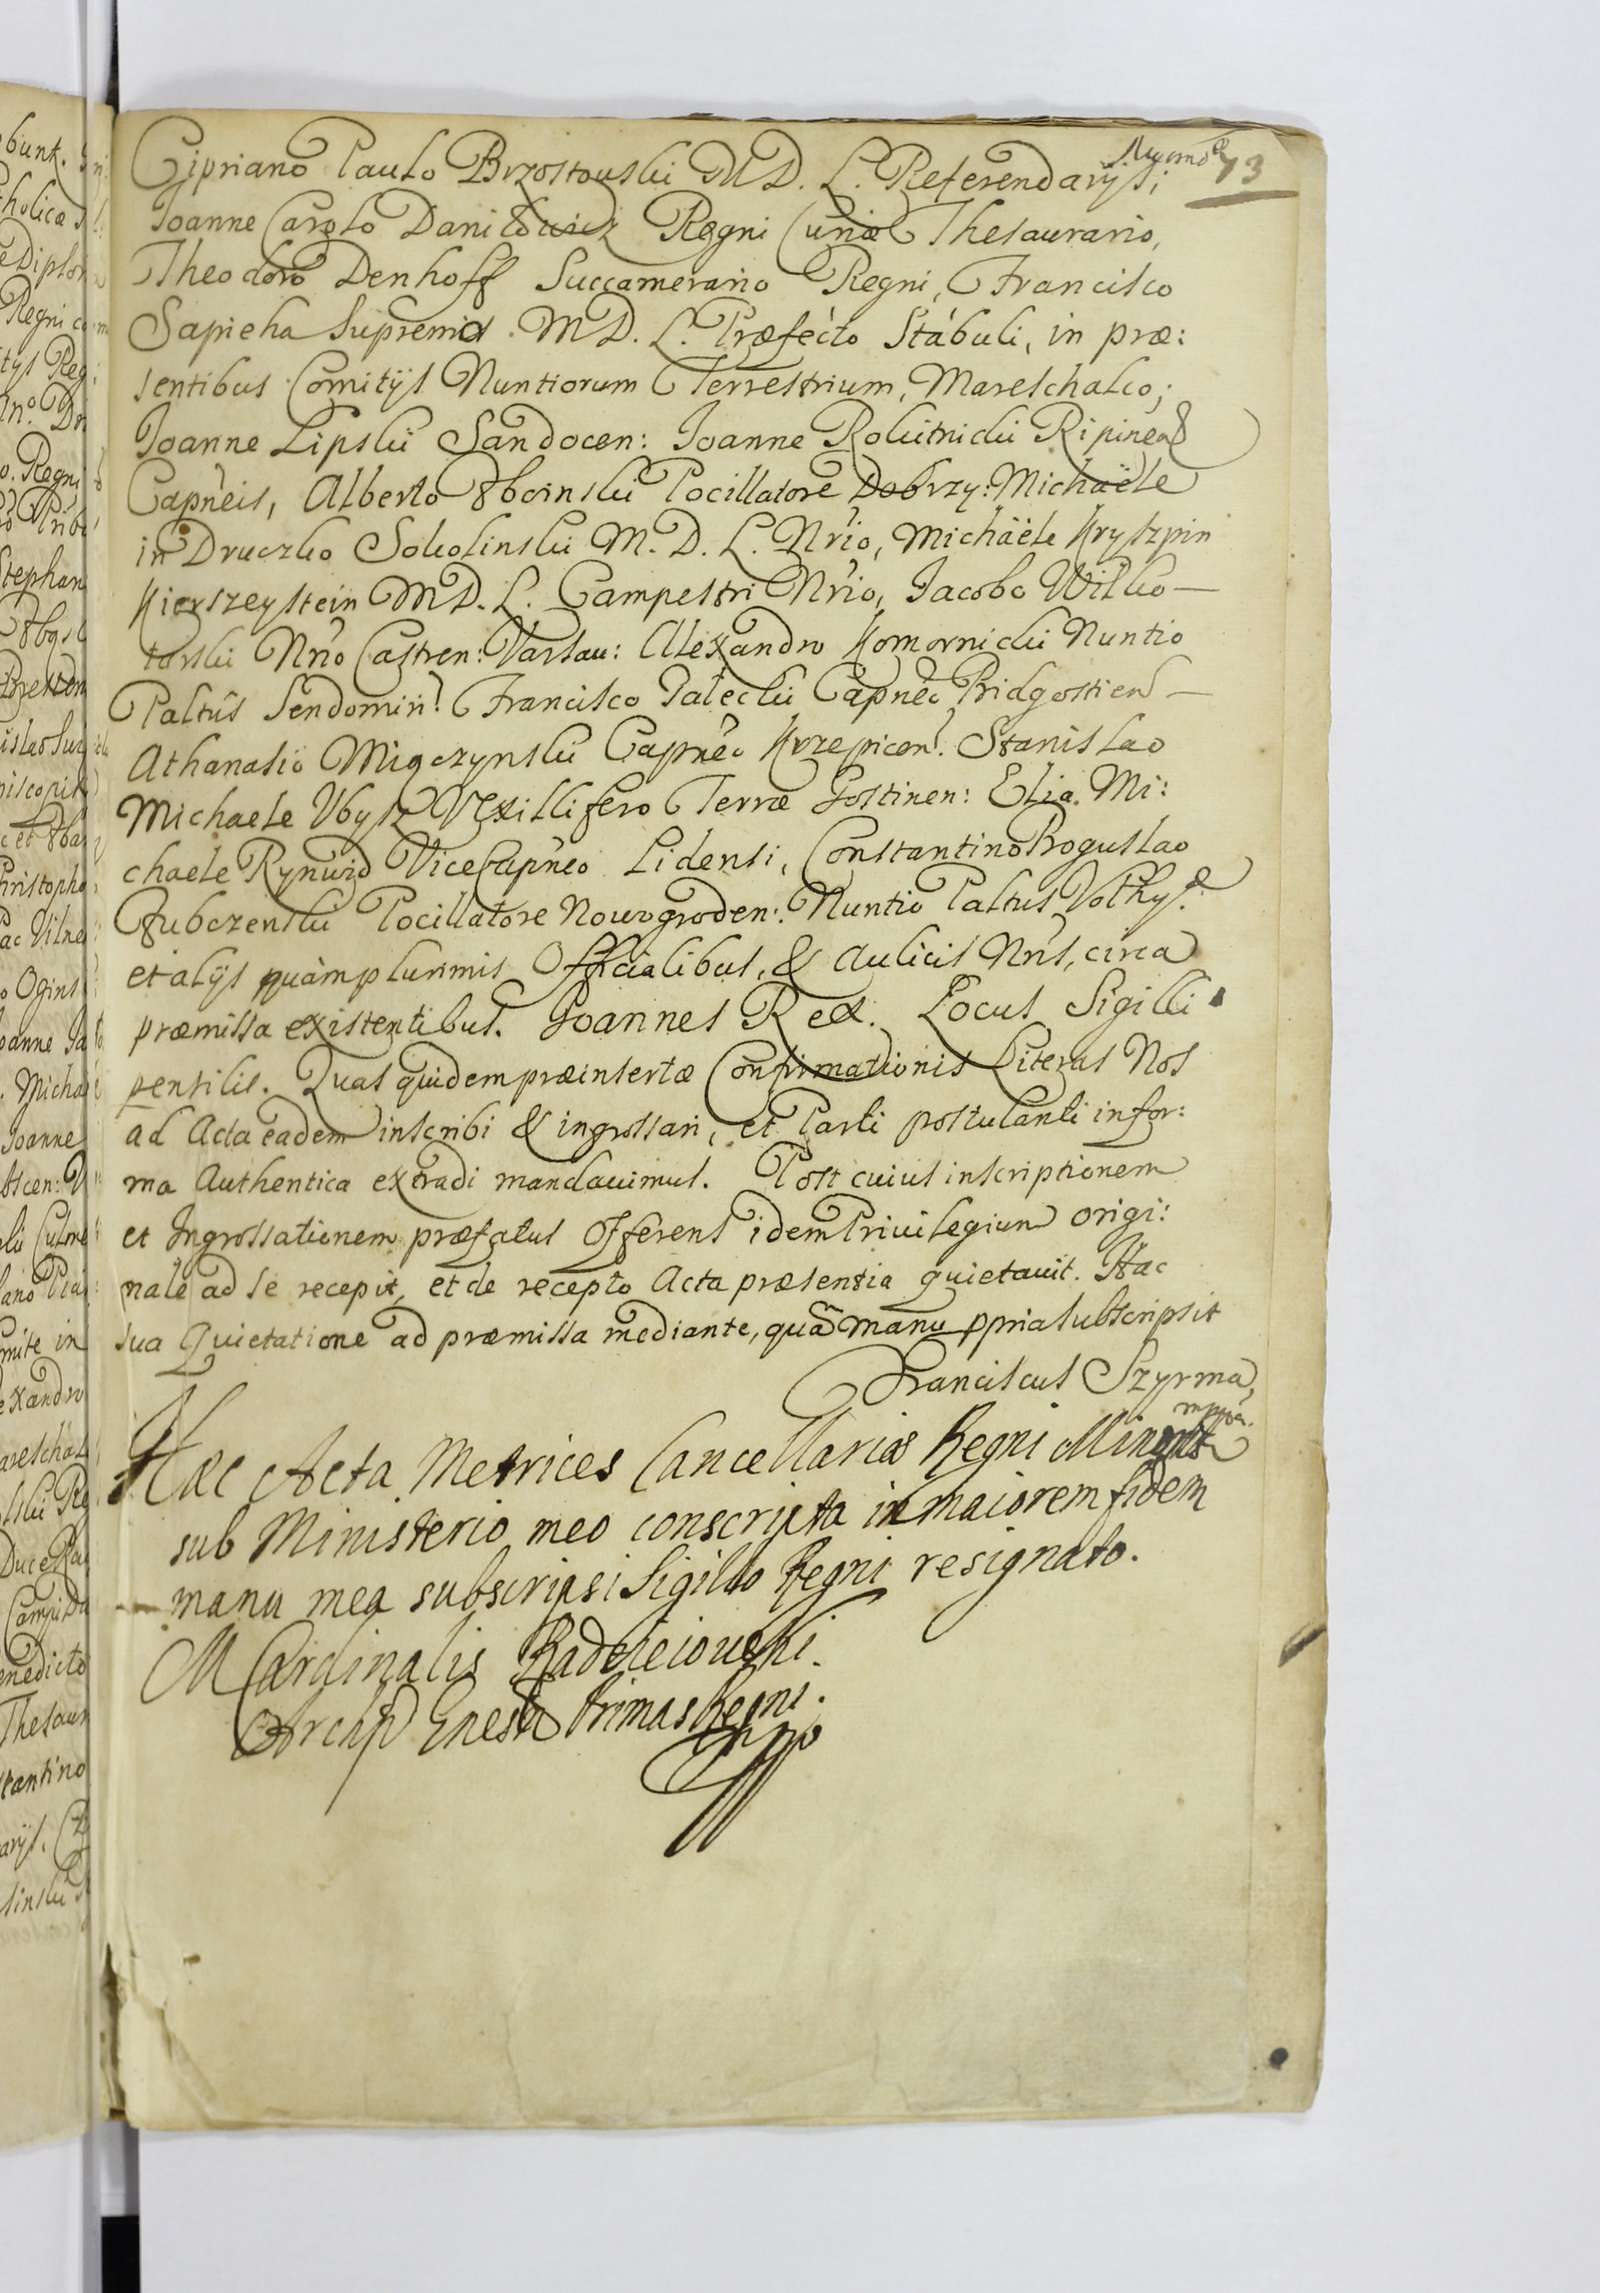 73
Cipriano Paulo Brzostouski M D. L. Referendarijs;
Joanne Carolo Daniłowicz Regni Curiæ Thesaurario,
Theodoro Denhoff Succamerario Regni, Francisco
Sapieha Supremo M D. L. Præfecto Stabuli, in præ:
sentibus Comitijs Nuntiorum Terrestrium, Mareschalco;
Joanne Lipski Sandocen: Joanne Rokitnicki Ripinen
Capneis, Alberto Pocillatore Dobrzy: Michaële
in Druczko Sokolinski M. D. L. Nrio, Michaële Kryszpin
Kierszeystein M D. L. Campestri Nrio, Jacobo Wilko
tarski Nrio Castren: Varsau: Alexandro Komornicki Nuntio
Paltus Sendomiri Francisco Gałecki Capneo Bidgostien
Athanasio Miączynski Capneo Krzepicen. Stanislao
Michaele Ubysz Vexillifero Terræ Gostinen: Elia Mi:
chaele Rynwid ViceCapneo Lidensi, Constantino Boguslao
Pocillatore Nowogroden: Nuntio Paltus Volhy:
et alijs quàmplurimis Officialibus, & Aulicis Nris, circa
præmissa existentibus. Joannes Rex. Locus Sigilli
pensilis. Quas quidem præinsertæ Confirmationis Literas Nos
ad Acta eadem inscribi & ingrossari, et Parti postulanti infor:
ma Authentica extradi mandauimus. Post cuius inscriptionem
et Ingrossationem præfatus Offerens idem Priuilegium origi:
nale ad se recepit, et de recepto Acta præsentia quietauit. Hac
sua Quietatione ad præmissa mediante, quã manu ppria subscripsit
Franciscus Szyrma,
mppa.
Hæc Acta Metrices Cancellariæ Regni Minoris
sub Ministerio meo conscripta in maiorem fidem
manu mea subscripsi Sigillo Regni resignato.
M Cardinalis Radzieiouski.
Archip Gnesn Primas Regni.
mpp